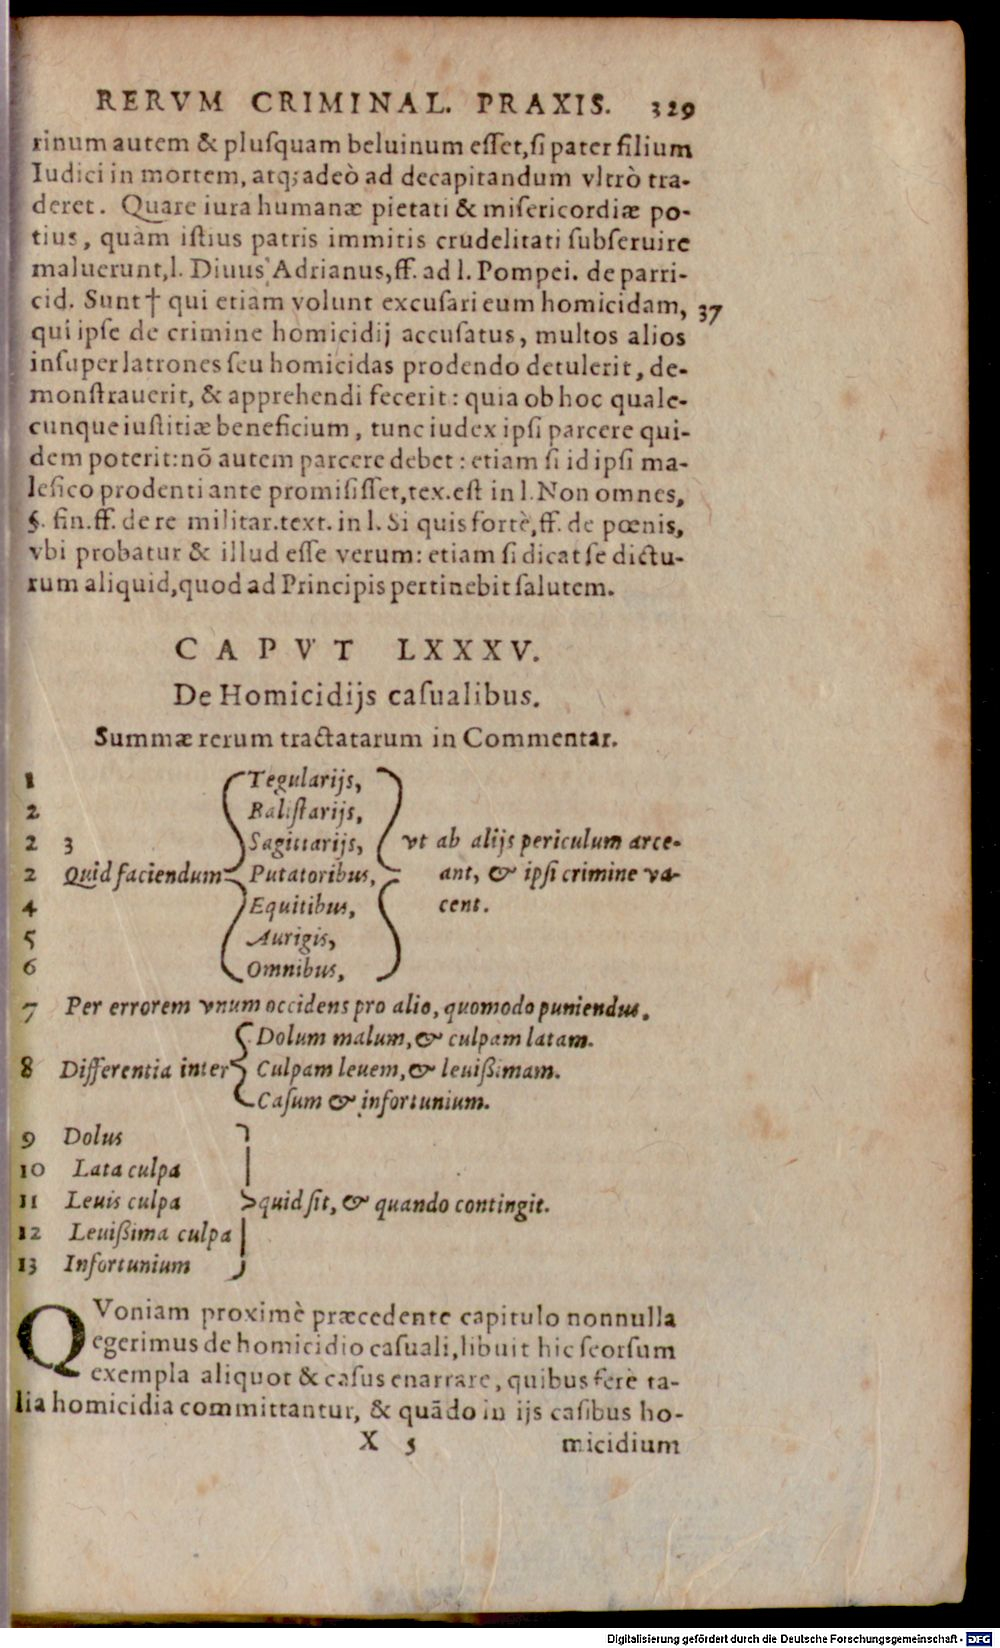 RERVM CRIMINAL. PRAXIS. 329
rinum autem & pluſquam beluinum eſſet,ſi pater filium
Iudici in mortem, atq; adeò ad decapitandum vltrò tra-
deret. Quare iura humanæ pietati & miſericordiæ po-
tius, quàm iſtius patris immitis crudelitati ſubſeruire
maluerunt,l. Diuus Adrianus,ff. ad l. Pompei. de parri-
cid. Sunt † qui etiam volunt excuſari eum homicidam, 37
qui ipſe de crimine homicidij accuſatus, multos alios
inſuper latrones ſeu homicidas prodendo detulerit, de-
monſtrauerit, & apprehendi fecerit: quia ob hoc quale-
cunque iuſtitiæ beneficium, tunc iudex ipſi parcere qui-
dem poterit:nō autem parcere debet: etiam ſi id ipſi ma-
lefico prodenti ante promiſiſſet,tex.eſt in l. Non omnes,
§. fin.ff. de re militar.text. in l. Si quis fortè,ff. de pœnis,
vbi probatur & illud eſſe verum: etiam ſi dicat ſe dictu-
rum aliquid,quod ad Principis pertinebit ſalutem.
CAPVT LXXXV.
De Homicidijs caſualibus.
Summæ rerum tractatarum in Commentar.
1 Tegularijs,
2 Baliſtarijs,
2 3 Sagittarijs, vt ab alijs periculum arce-
2 Quid faciendum Putatoribus, ant, & ipſi crimine va-
4 Equitibus, cent.
5 Aurigis,
6 Omnibus,
7 Per errorem vnum occidens pro alio, quomodo puniendus.
Dolum malum, & culpam latam.
8 Differentia inter Culpam leuem, & leuiſſimam.
Caſum & infortunium.
9 Dolus
10 Lata culpa
11 Leuis culpa quid ſit, & quando contingit.
12 Leuißima culpa
13 Infortunium
QVoniam proximè præcedente capitulo nonnulla
egerimus de homicidio caſuali,libuit hic ſeorſum
exempla aliquot & caſus enarrare, quibus ferè ta-
lia homicidia committantur, & quādo in ijs caſibus ho-
X 5 micidium
Digitalisierung gefördert durch die Deutsche Forschungsgemeinschaft - DFG